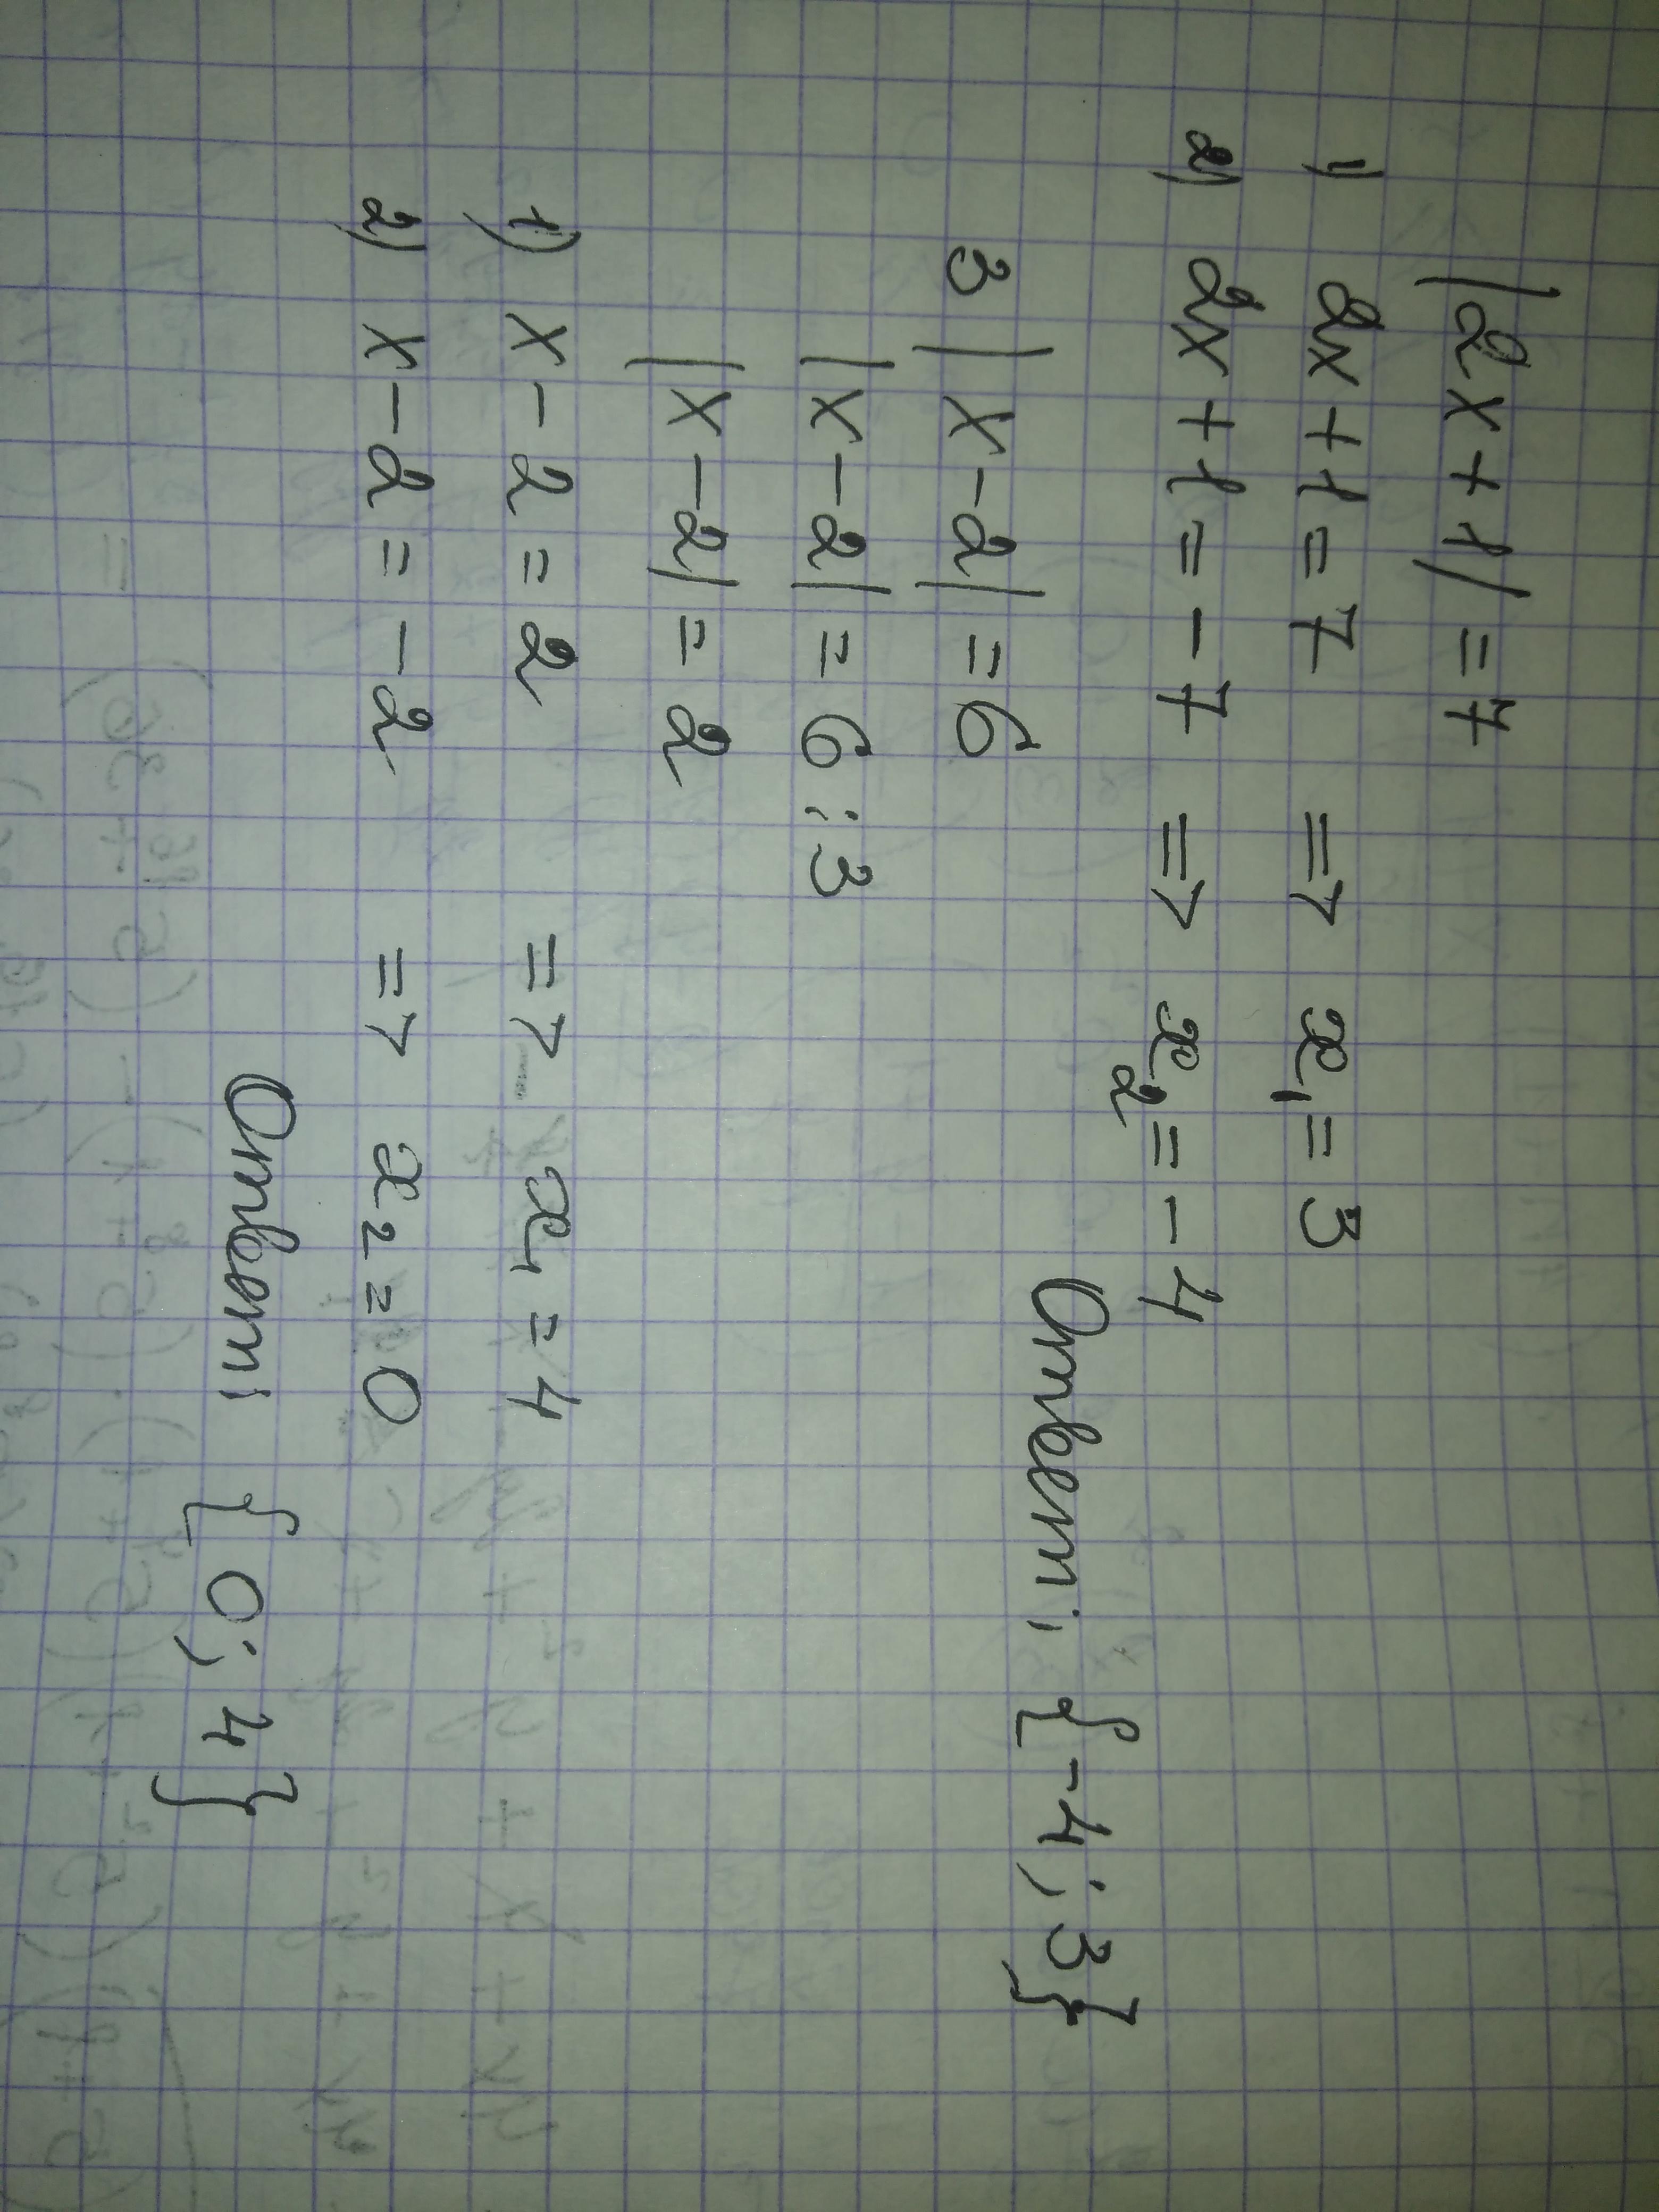 |2x+1|=7
1) 2x+1=7 => x₁=3
2) 2x+1=-7 => x₂=-4
Ответ: {-4;3}
3|x-2|=6
|x-2|=6:3
|x-2|=2
1) x-2=2 => x₁=4
2) x-2=-2 => x₂=0
Ответ: {0;4}